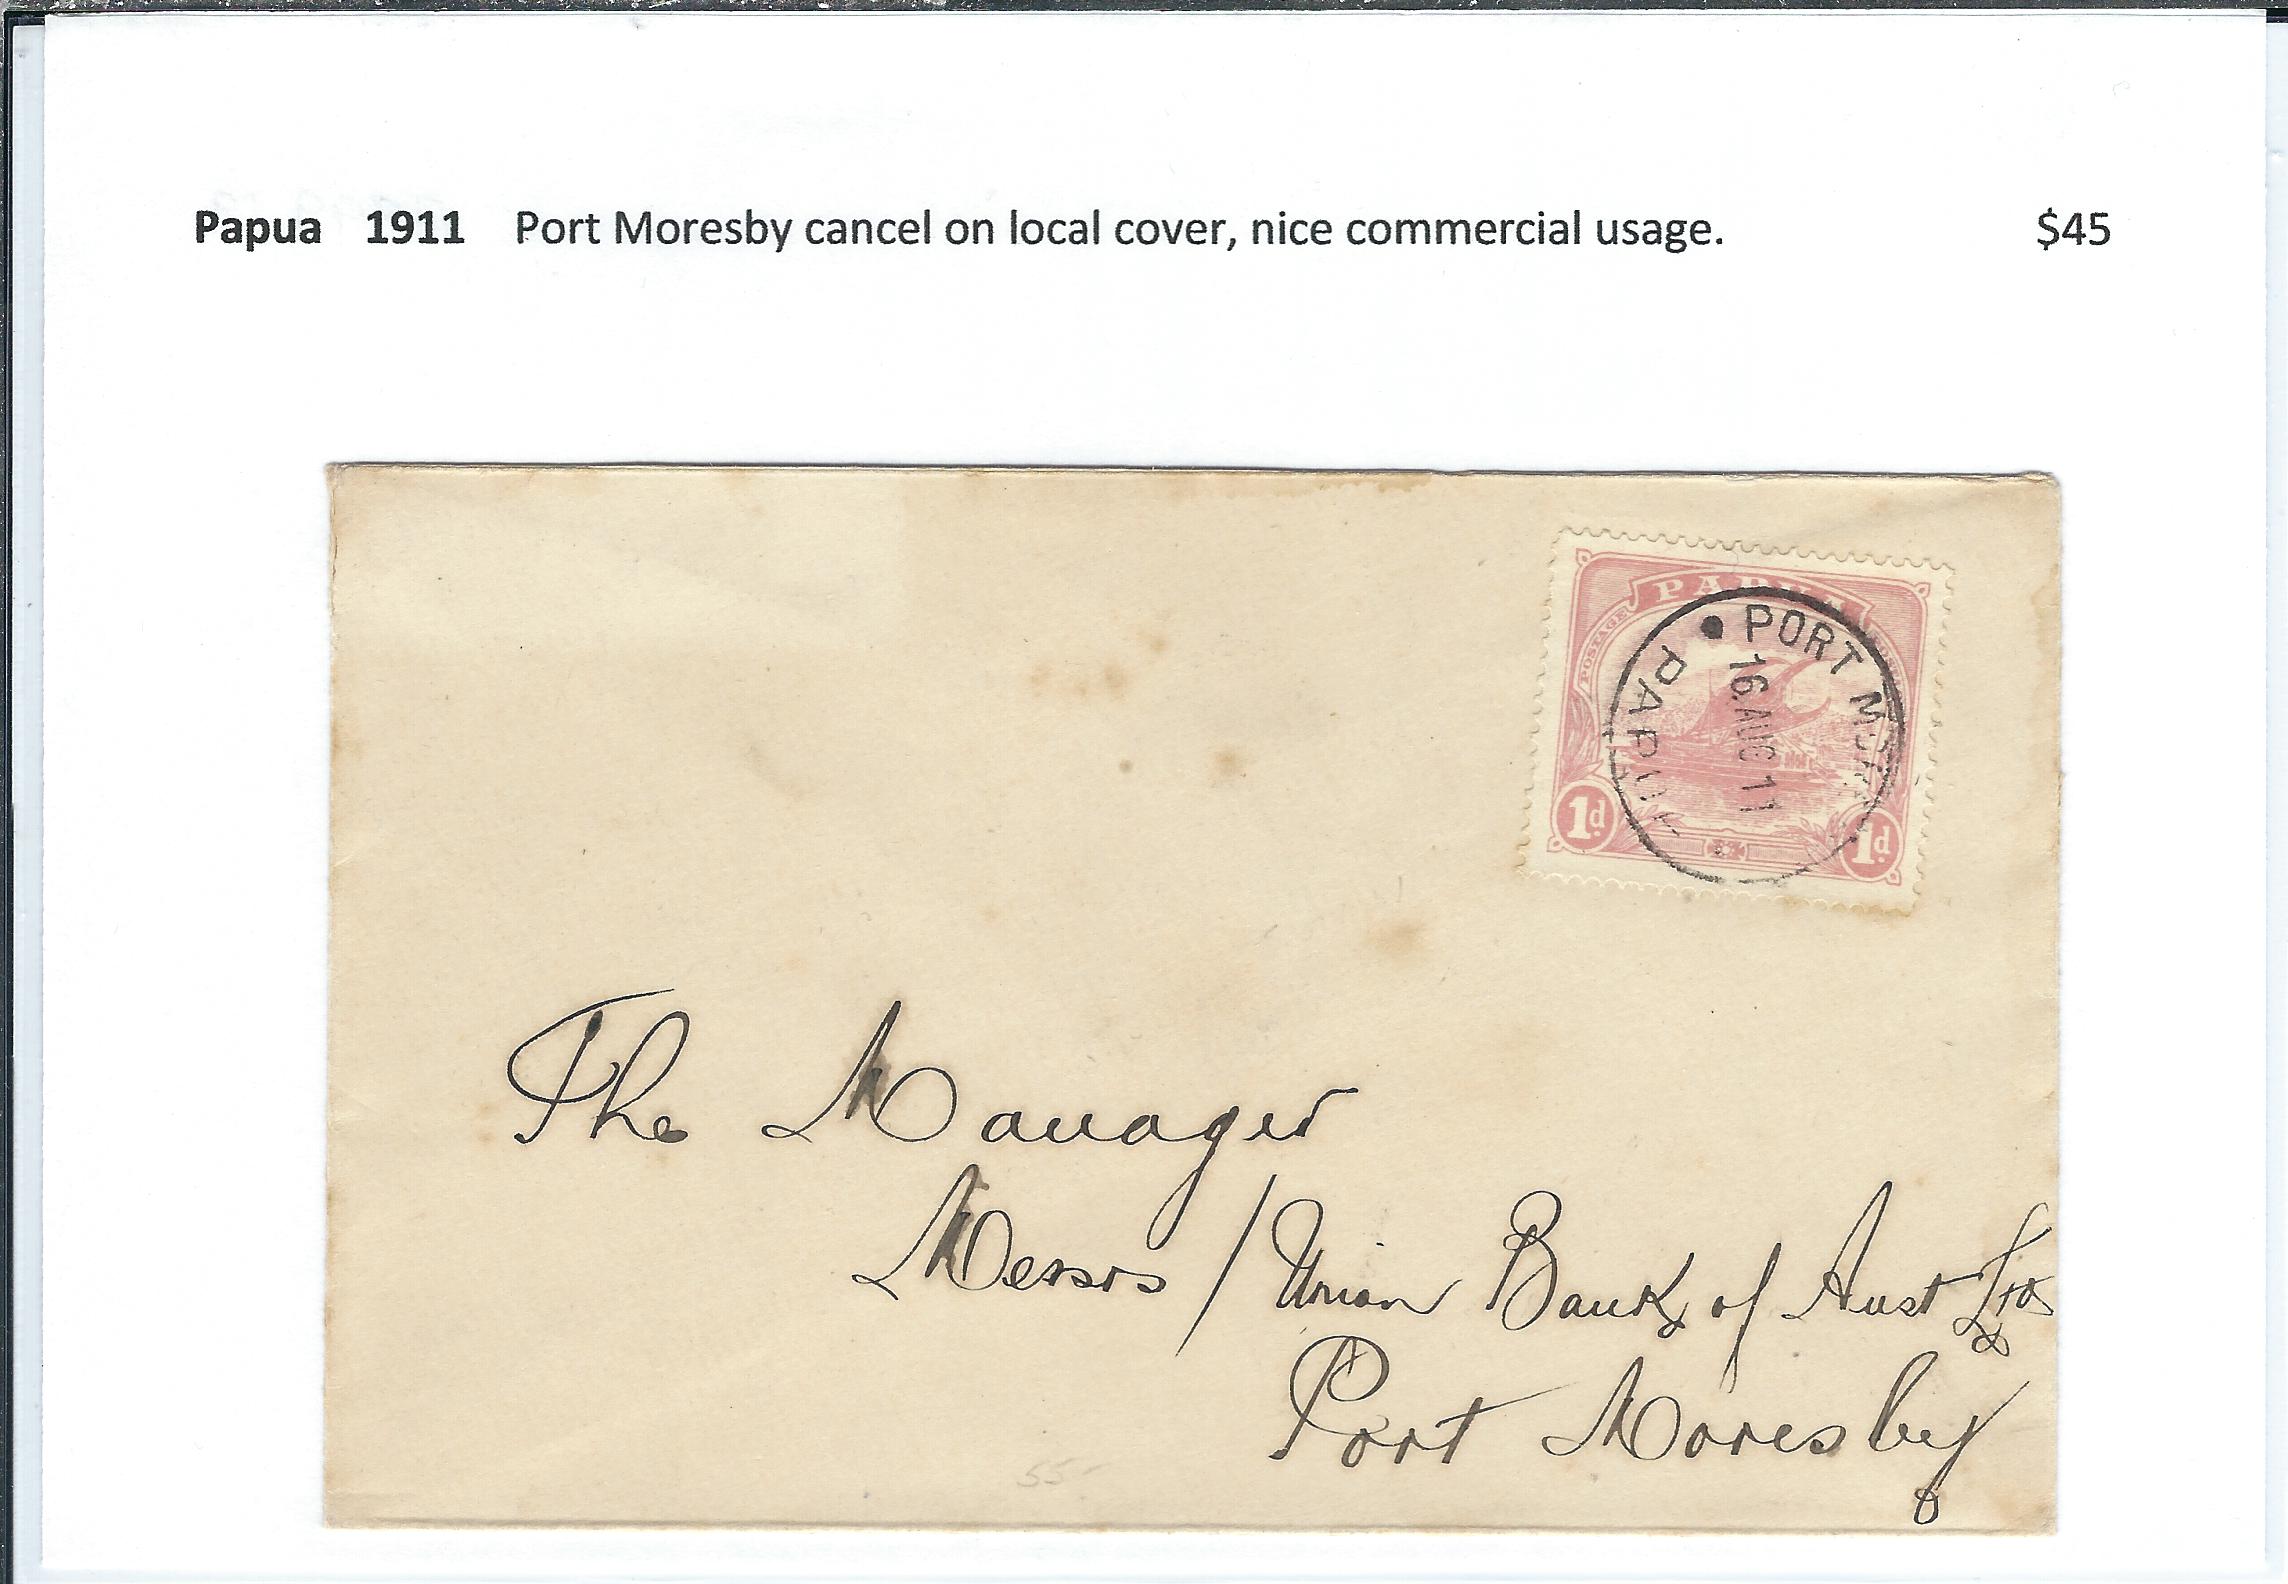 Papua 1911 Port Moresby cancel on local cover, nice commercial usage. $45
PAPUA
POSTAGE
PORT MORESBY
16.AUG 11
PAPUA
1d. 1d.
The Manager
Messrs / Union Bank of Aust Ltd
Port Moresby
55-